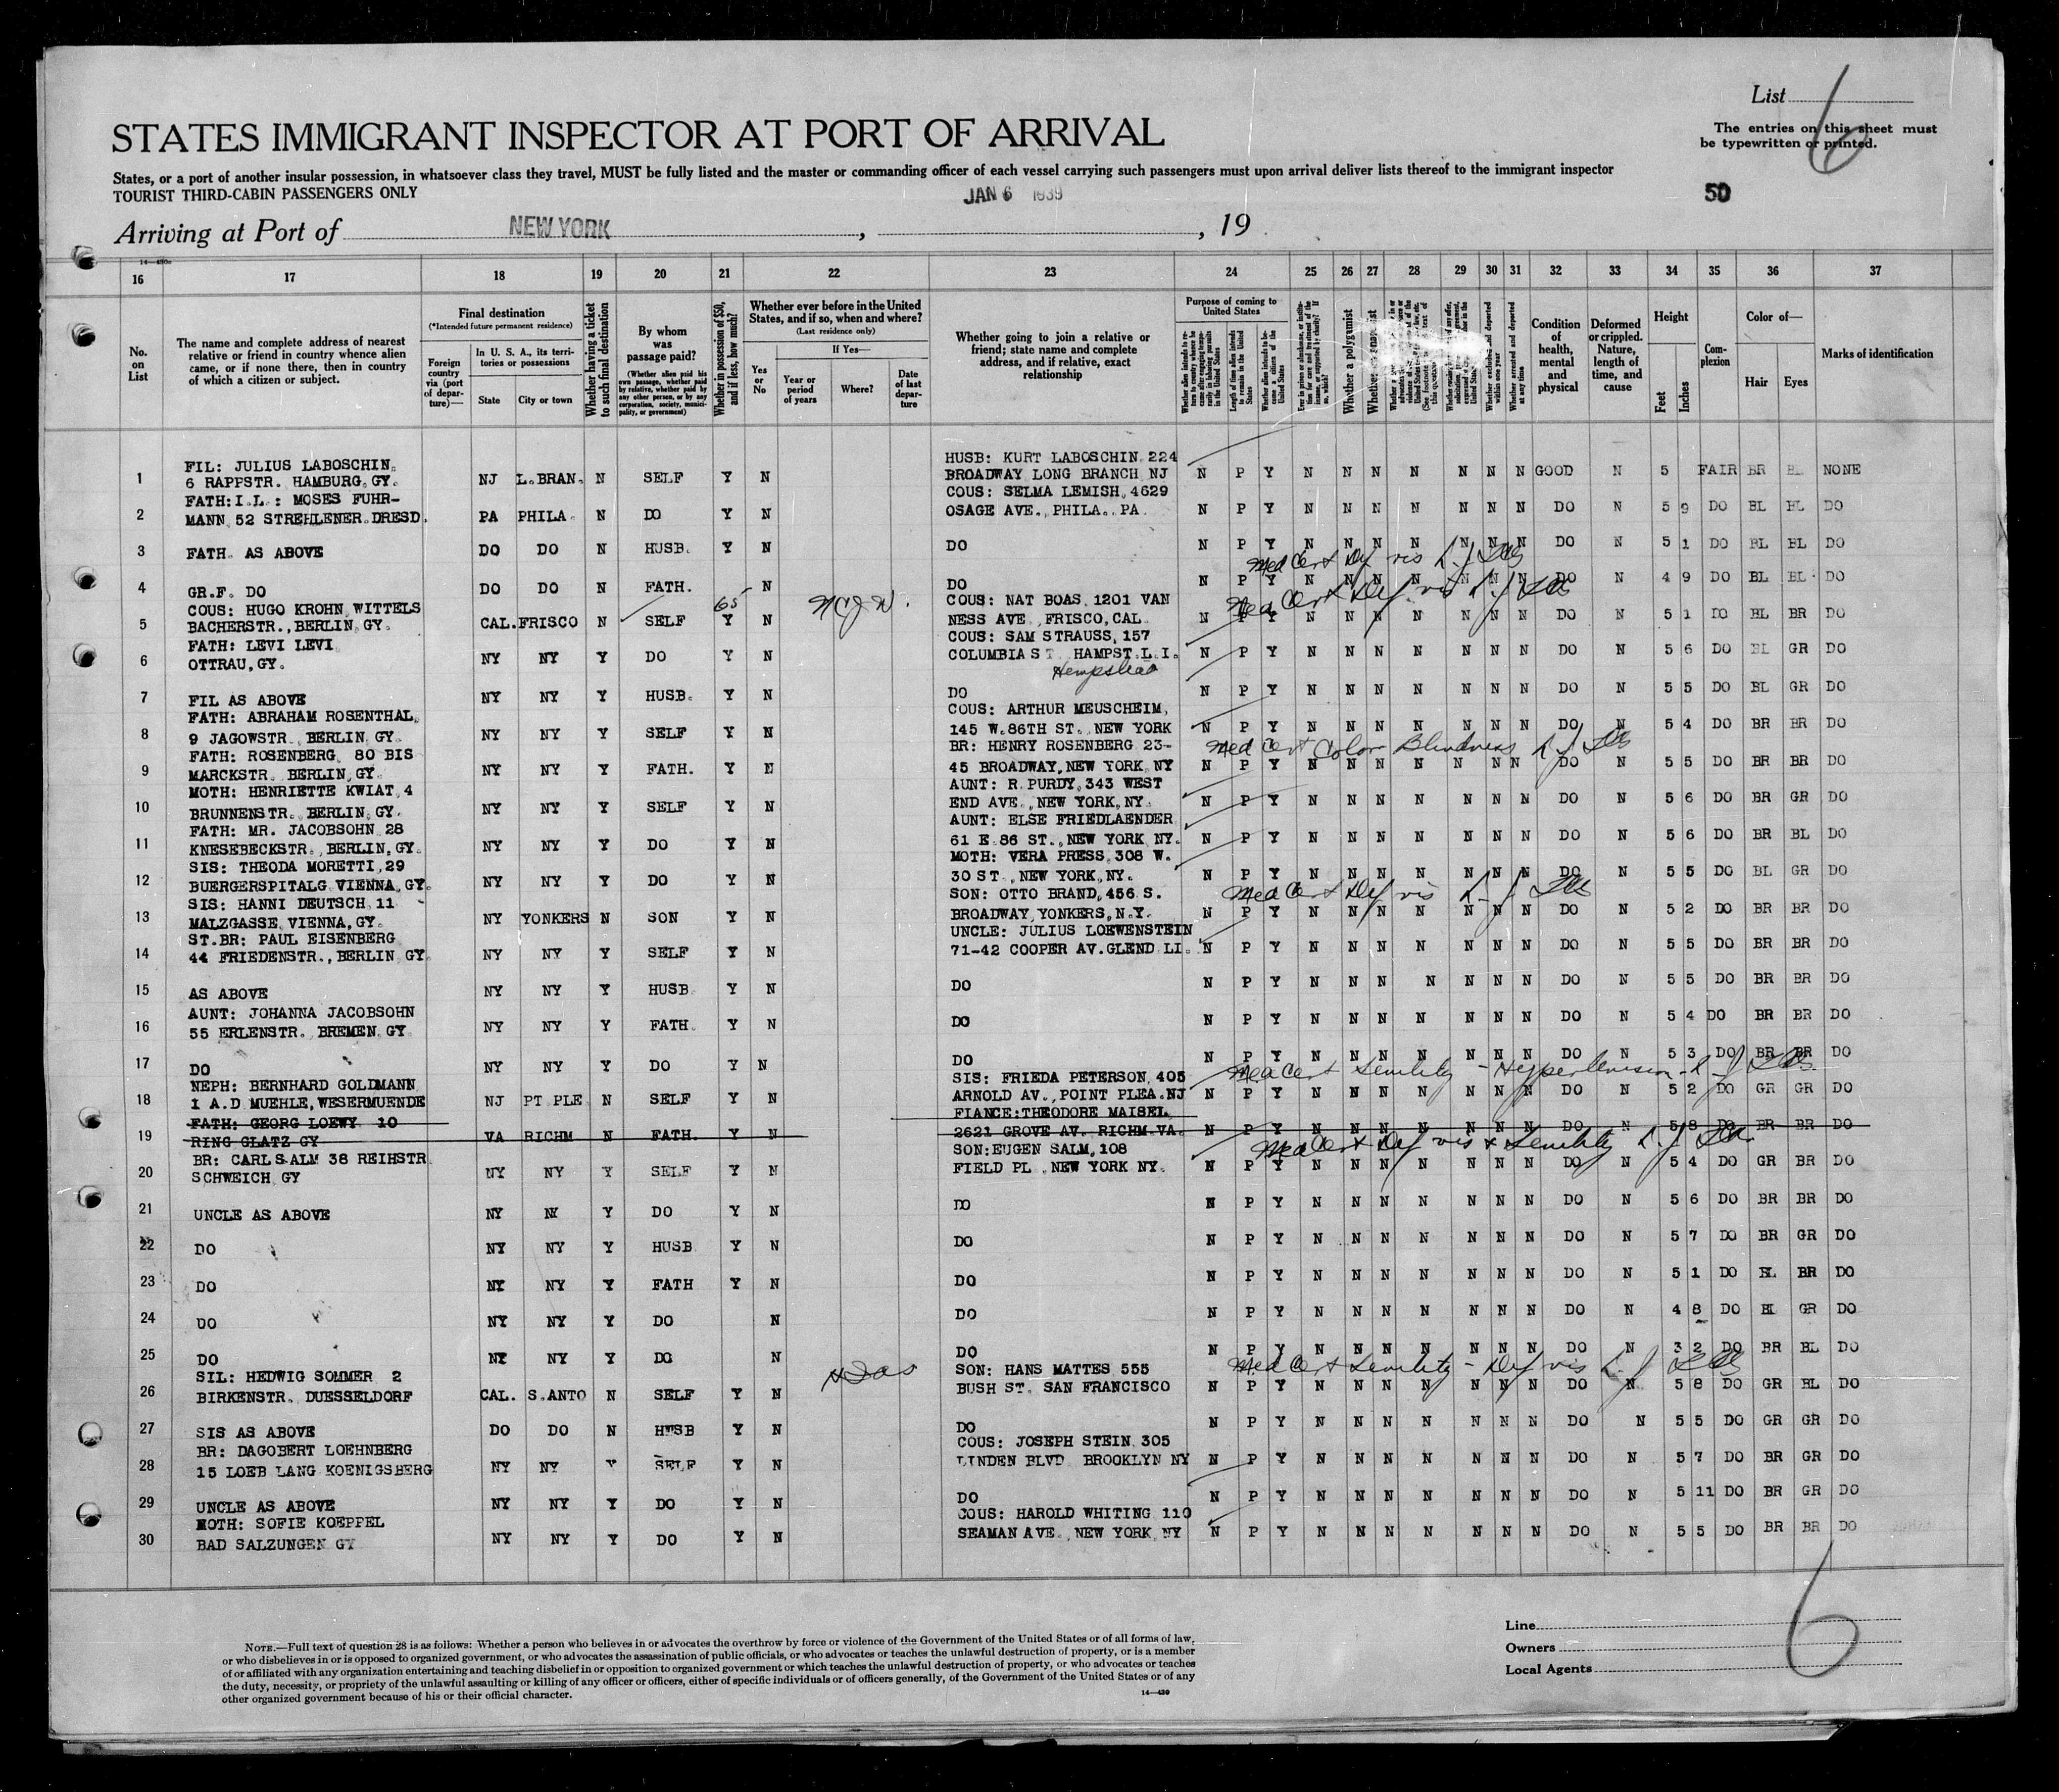 List 6
STATES IMMIGRANT INSPECTOR AT PORT OF ARRIVAL
The entries on this sheet must
be typewritten or printed.
States, or a port of another insular possession, in whatsoever class they travel, MUST be fully listed and the master or commanding officer of each vessel carrying such passengers must upon arrival deliver lists thereof to the immigrant inspector
TOURIST THIRD-CABIN PASSENGERS ONLY
JAN 6 1939
50
Arriving at Port of NEW YORK , , 19
16 17 18 19 20 21 22 23 24 25 26 27 28 29 30 31 32 33 34 35 36 37
No. on List
The name and complete address of nearest relative or friend in country whence alien came, or if none there, then in country of which a citizen or subject.
Final destination
(*Intended future permanent residence)
Foreign country via (port of departure)—
In U. S. A., its territories or possessions
State
City or town
Whether having a ticket to such final destination
By whom was passage paid?
(Whether alien paid his own passage, whether paid by relative, whether paid by any other person, or by any corporation, society, municipality, or government)
Whether in possession of $50, and if less, how much?
Whether ever before in the United States, and if so, when and where?
(Last residence only)
Yes or No
If Yes—
Year or period of years
Where?
Date of last departure
Whether going to join a relative or friend; state name and complete address, and if relative, exact relationship
Purpose of coming to United States
Whether a polygamist
Condition of health, mental and physical
Deformed or crippled. Nature, length of time, and cause
Height
Feet
Inches
Complexion
Color of—
Hair
Eyes
Marks of identification
HUSB: KURT LABOSCHIN 224
FIL: JULIUS LABOSCHIN.
1 6 RAPPSTR. HAMBURG.GY. NJ L.BRAN. N SELF Y N BROADWAY LONG BRANCH NJ N P Y N N N N N N N GOOD N 5 FAIR BR BL NONE
FATH:I.L.: MOSES FUHR- COUS: SELMA LEMISH, 4629
2 MANN 52 STREHLENER.DRESD. PA PHILA. N DO Y N OSAGE AVE., PHILA., PA N P Y N N N N N N N DO N 5 9 DO BL BL DO
3 FATH. AS ABOVE DO DO N HUSB. Y N DO N P Y N N N N N N N DO N 5 1 DO BL BL DO
Med Cert Def vis
4 GR.F. DO DO DO N FATH. N DO N P Y N N N N N N N DO N 4 9 DO BL BL DO
COUS: HUGO KROHN WITTELS 65 COUS: NAT BOAS 1201 VAN Med Cert Def vis
5 BACHERSTR., BERLIN GY. CAL. FRISCO N SELF Y N NESS AVE., FRISCO, CAL. N P Y N N N N N N N DO N 5 1 DO BL BR DO
FATH: LEVI LEVI COUS: SAM STRAUSS, 157
6 OTTRAU, GY. NY NY Y DO Y N COLUMBIA ST HAMPST.L.I. N P Y N N N N N N N DO N 5 6 DO BL GR DO
Hempstead
7 FIL AS ABOVE NY NY Y HUSB. Y N DO N P Y N N N N N N N DO N 5 5 DO BL GR DO
FATH: ABRAHAM ROSENTHAL, COUS: ARTHUR MEUSCHEIM,
8 9 JAGOWSTR. BERLIN GY. NY NY Y SELF Y N 145 W.86TH ST. NEW YORK N P Y N N N N N N N DO N 5 4 DO BR BR DO
FATH: ROSENBERG 80 BIS BR: HENRY ROSENBERG 23- Med Cert Color Blindness
9 MARCKSTR. BERLIN, GY. NY NY Y FATH. Y N 45 BROADWAY, NEW YORK NY N P Y N N N N N N N DO N 5 5 DO BR BR DO
MOTH: HENRIETTE KWIAT, 4 AUNT: R.PURDY, 343 WEST
10 BRUNNENSTR. BERLIN GY. NY NY Y SELF Y N END AVE., NEW YORK, NY. N P Y N N N N N N N DO N 5 6 DO BR GR DO
FATH: MR. JACOBSOHN 28 AUNT: ELSE FRIEDLAENDER
11 KNESEBECKSTR., BERLIN, GY. NY NY Y DO Y N 61 E 86 ST., NEW YORK NY. N P Y N N N N N N N DO N 5 6 DO BR BL DO
SIS: THEODA MORETTI, 29 MOTH: VERA PRESS, 308 W.
12 BUERGERSPITALG VIENNA, GY. NY NY Y DO Y N 30 ST., NEW YORK, NY. N P Y N N N N N N N DO N 5 5 DO BL GR DO
SIS: HANNI DEUTSCH 11 SON: OTTO BRAND, 456 S. Med Cert Def vis
13 MALZGASSE VIENNA, GY. NY YONKERS N SON Y N BROADWAY, YONKERS, N.Y. N P Y N N N N N N N DO N 5 2 DO BR BR DO
ST.BR: PAUL EISENBERG UNCLE: JULIUS LOEWENSTEIN
14 44 FRIEDENSTR., BERLIN GY. NY NY Y SELF Y N 71-42 COOPER AV.GLEND LI. N P Y N N N N N N N DO N 5 5 DO BR BR DO
15 AS ABOVE NY NY Y HUSB Y N DO N P Y N N N N N N N DO N 5 5 DO BR BR DO
AUNT: JOHANNA JACOBSOHN
16 55 ERLENSTR. BREMEN GY NY NY Y FATH. Y N DO N P Y N N N N N N N DO N 5 4 DO BR BR DO
17 DO NY NY Y DO Y N DO N P Y N N N N N N N DO N 5 3 DO BR BR DO
NEPH: BERNHARD GOLDMANN SIS: FRIEDA PETERSON, 405 Med Cert Senility - Hypertension
18 1 A.D MUEHLE, WESERMUENDE NJ PT PLE N SELF Y N ARNOLD AV., POINT PLEA.NJ N P Y N N N N N N N DO N 5 2 DO GR GR DO
FATH: GEORG LOEWY 10 FIANCE: THEODORE MAISEL
19 RING GLATZ GY VA RICHM N FATH. Y N 2621 GROVE AV. RICHM.VA. N P Y N N N N N N N DO N 5 8 DO BR BR DO
BR: CARL SALM 38 REIHSTR SON: EUGEN SALM, 108 Med Cert Def vis & Senility
20 SCHWEICH GY NY NY Y SELF Y N FIELD PL., NEW YORK NY. N P Y N N N N N N N DO N 5 4 DO GR BR DO
21 UNCLE AS ABOVE NY NY Y DO Y N DO N P Y N N N N N N N DO N 5 6 DO BR BR DO
22 DO NY NY Y HUSB Y N DO N P Y N N N N N N N DO N 5 7 DO BR GR DO
23 DO NY NY Y FATH Y N DO N P Y N N N N N N N DO N 5 1 DO BL BR DO
24 DO NY NY Y DO N DO N P Y N N N N N N N DO N 4 8 DO BL GR DO
25 DO NY NY Y DO N DO N P Y N N N N N N N DO N 3 2 DO BR BL DO
SIL: HEDWIG SOMMER 2 SON: HANS MATTES 555 Med Cert Senility - Def vis
26 BIRKENSTR. DUESSELDORF CAL. S.ANTO N SELF Y N BUSH ST. SAN FRANCISCO N P Y N N N N N N N DO N 5 8 DO GR BL DO
27 SIS AS ABOVE DO DO N HUSB Y N DO N P Y N N N N N N N DO N 5 5 DO GR GR DO
BR: DAGOBERT LOEHNBERG COUS: JOSEPH STEIN 305
28 15 LOEB LANG KOENIGSBERG NY NY Y SELF Y N LINDEN BLVD BROOKLYN NY N P Y N N N N N N N DO N 5 7 DO BR GR DO
29 UNCLE AS ABOVE NY NY Y DO Y N DO N P Y N N N N N N N DO N 5 11 DO BR GR DO
MOTH: SOFIE KOEPPEL COUS: HAROLD WHITING 110
30 BAD SALZUNGEN GY NY NY Y DO Y N SEAMAN AVE., NEW YORK NY N P Y N N N N N N N DO N 5 5 DO BR BR DO
6
Line
Owners
Local Agents
NOTE.—Full text of question 28 is as follows: Whether a person who believes in or advocates the overthrow by force or violence of the Government of the United States or of all forms of law,
or who disbelieves in or is opposed to organized government, or who advocates the assassination of public officials, or who advocates or teaches the unlawful destruction of property, or is a member
of or affiliated with any organization entertaining and teaching disbelief in or opposition to organized government or which teaches the unlawful destruction of property, or who advocates or teaches
the duty, necessity, or propriety of the unlawful assaulting or killing of any officer or officers, either of specific individuals or of officers generally, of the Government of the United States or of any
other organized government because of his or their official character.
14—430